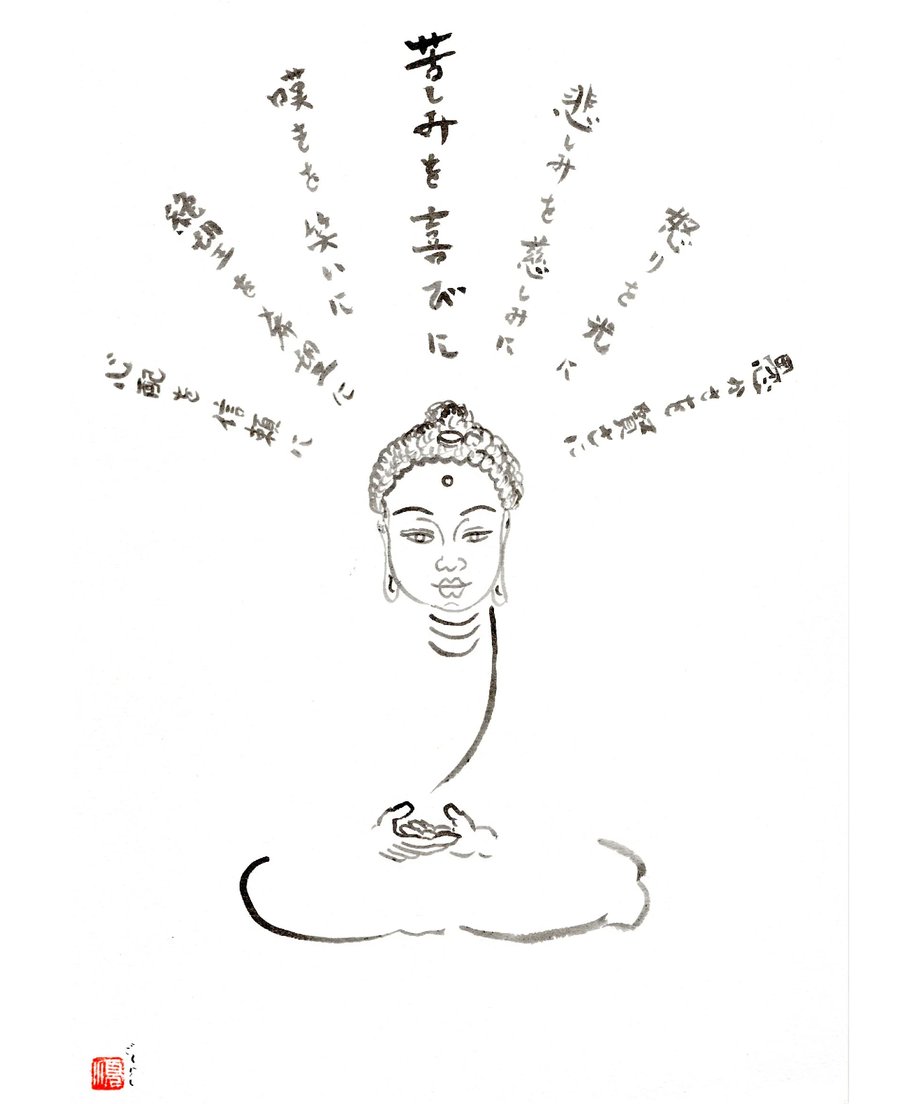 愚かさを賢さに
怒りを光に
悲しみを慈しみに
苦しみを喜びに
嘆きを笑いに
絶望を希望に
心配を信頼に